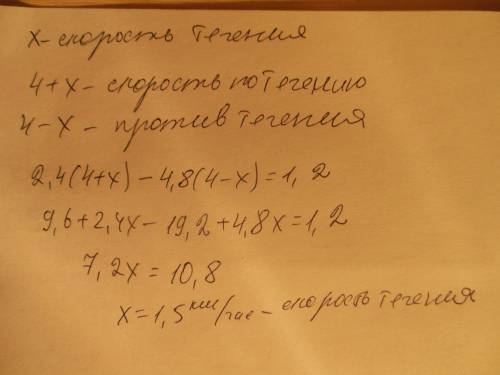 x - скорость течения
4+x - скорость по течению
4-x - против течения
2,4(4+x) - 4,8(4-x) = 1,2
9,6+2,4x - 19,2+4,8x = 1,2
7,2x = 10,8
x = 1,5 км/час - скорость течения